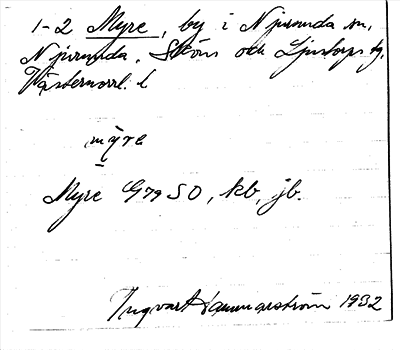 1-2 Myre, by i Njurunda sn,
Njurunda, Sköns och Ljustorps tg,
Västernorrl. l
mỳre
Myre G79 SO, kb, jb.
Ingvar Hammarström 1932